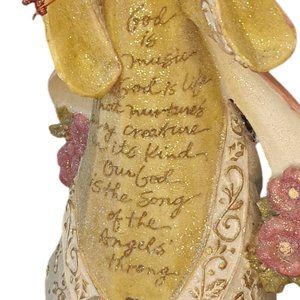 God
is
music
God is life
that nurtures
every creature
in its kind.
Our God
is the Song
of the
Angels'
throng